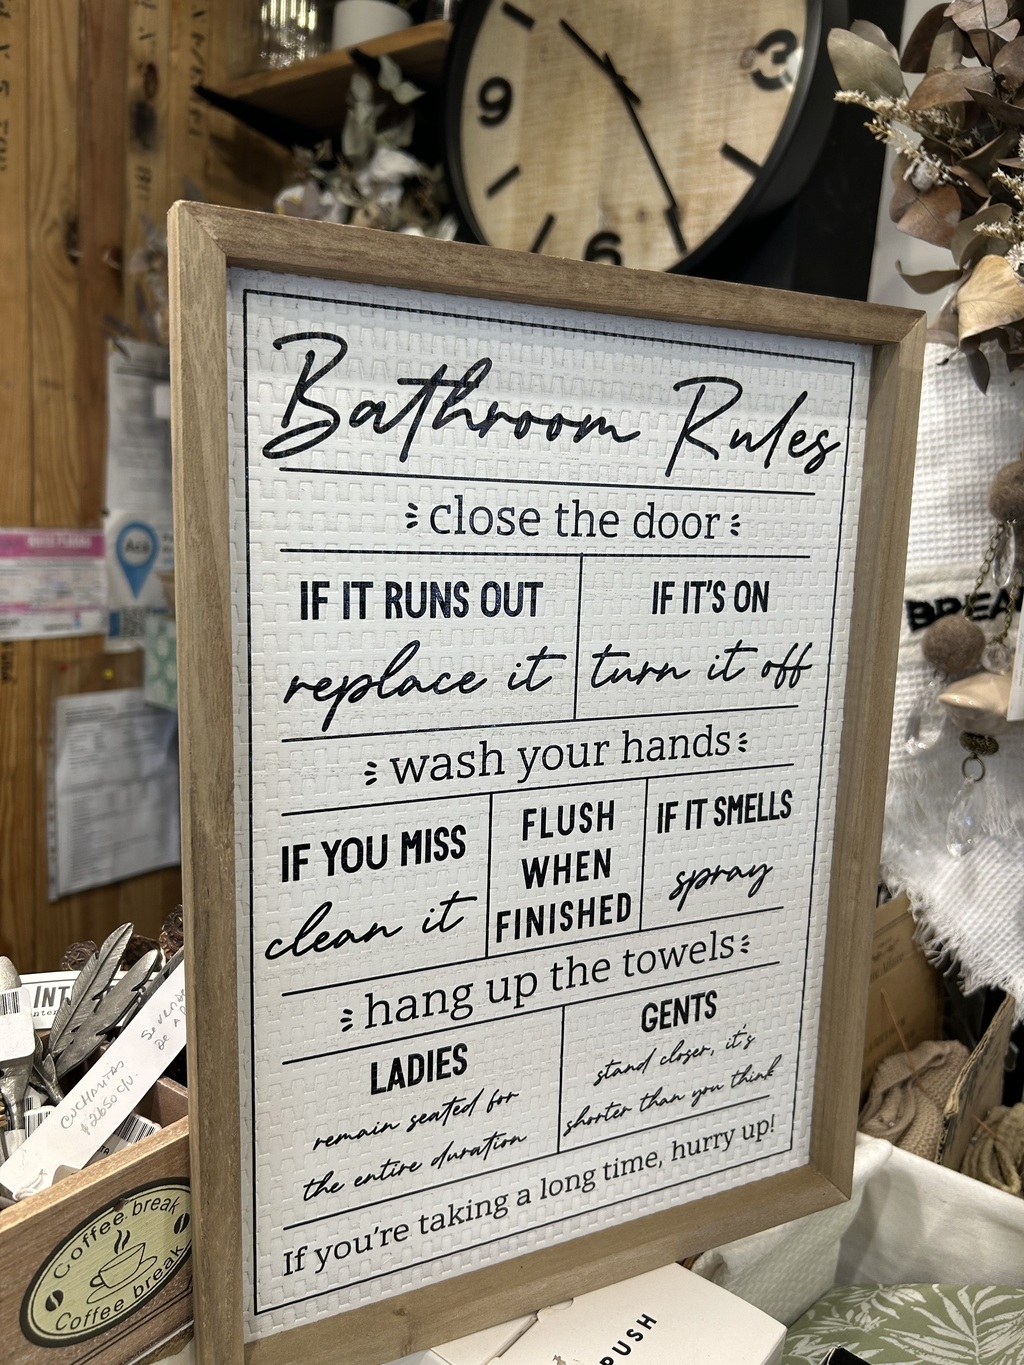 9
3
6
Bathroom Rules
close the door
IF IT RUNS OUT
replace it
IF IT'S ON
turn it off
wash your hands
IF YOU MISS
clean it
FLUSH
WHEN
FINISHED
IF IT SMELLS
spray
hang up the towels
LADIES
remain seated for
the entire duration
GENTS
stand closer, it's
shorter than you think
If you're taking a long time, hurry up!
INT
CUCHARITAS
$2650 c/u.
Coffee break
Coffee break
BREA
PUSH